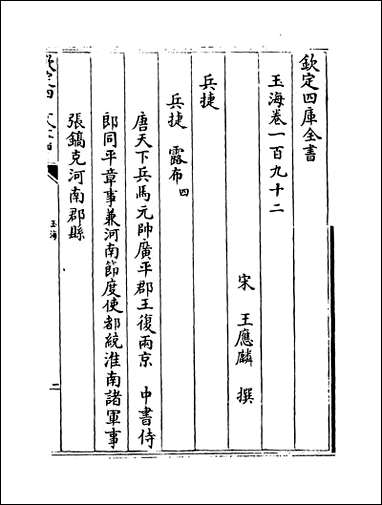 欽定四庫全書
玉海卷一百九十二
宋 王應麟 撰
兵捷
兵捷 露布四
唐天下兵馬元帥廣平郡王復兩京 中書侍
郎同平章事兼河南節度使都統淮南諸軍事
張鎬克河南郡縣
玉海
二